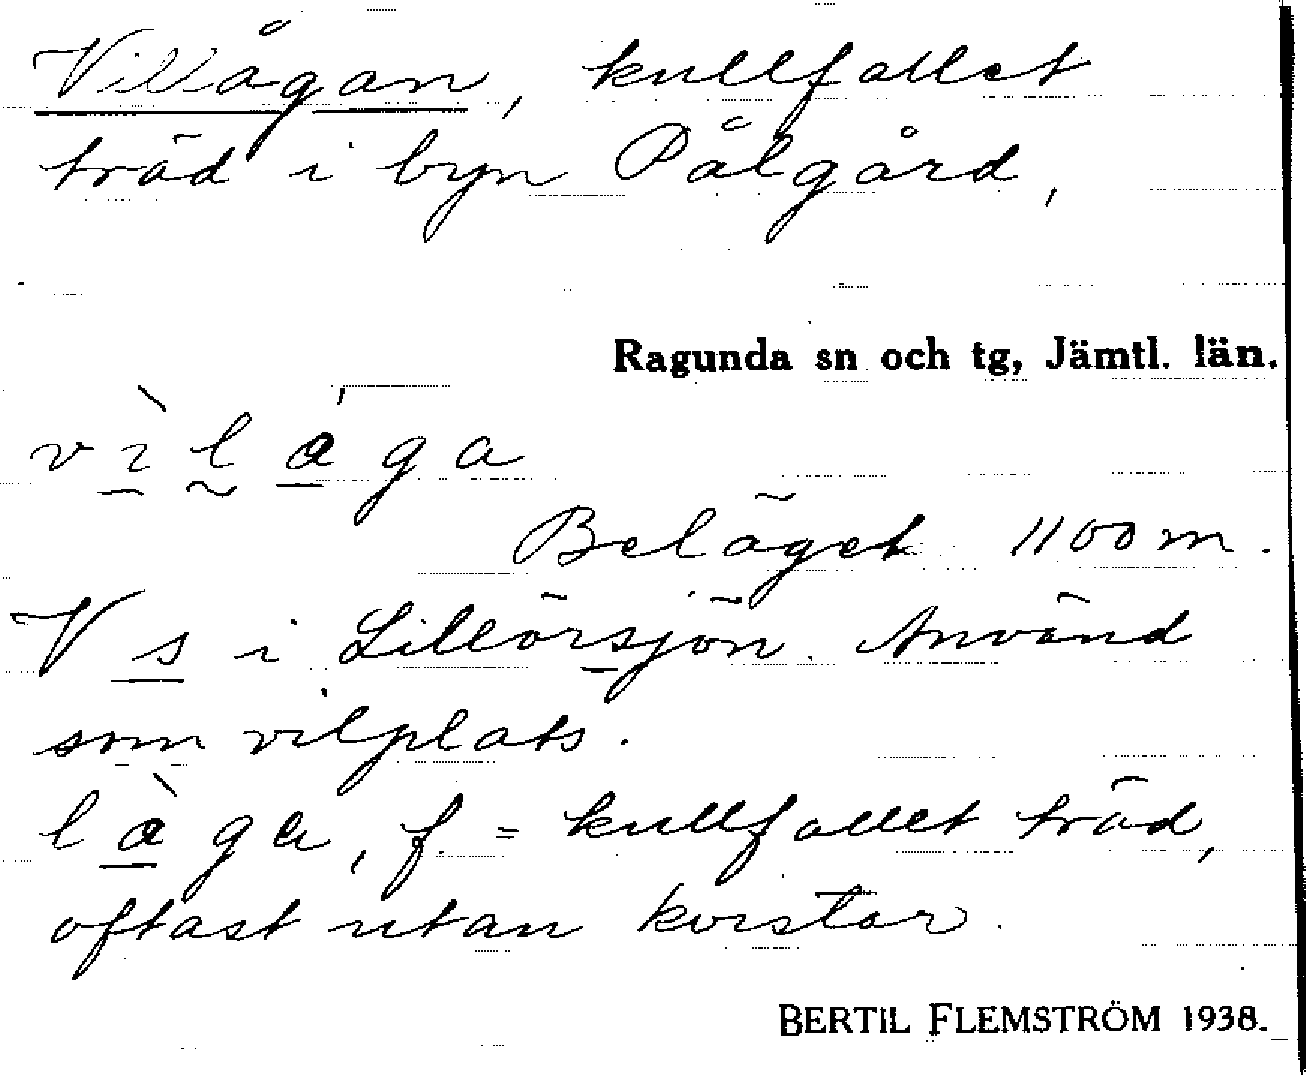 Villågan, kullfallet
träd i byn Pålgård,
Ragunda sn och tg, Jämtl. län.
vìlága
Beläget 1100 m.
V s i Lillörsjön. Använd
som vilplats.
làga, f. = kullfallet träd,
oftast utan kvistar.
BERTIL FLEMSTRÖM 1938.